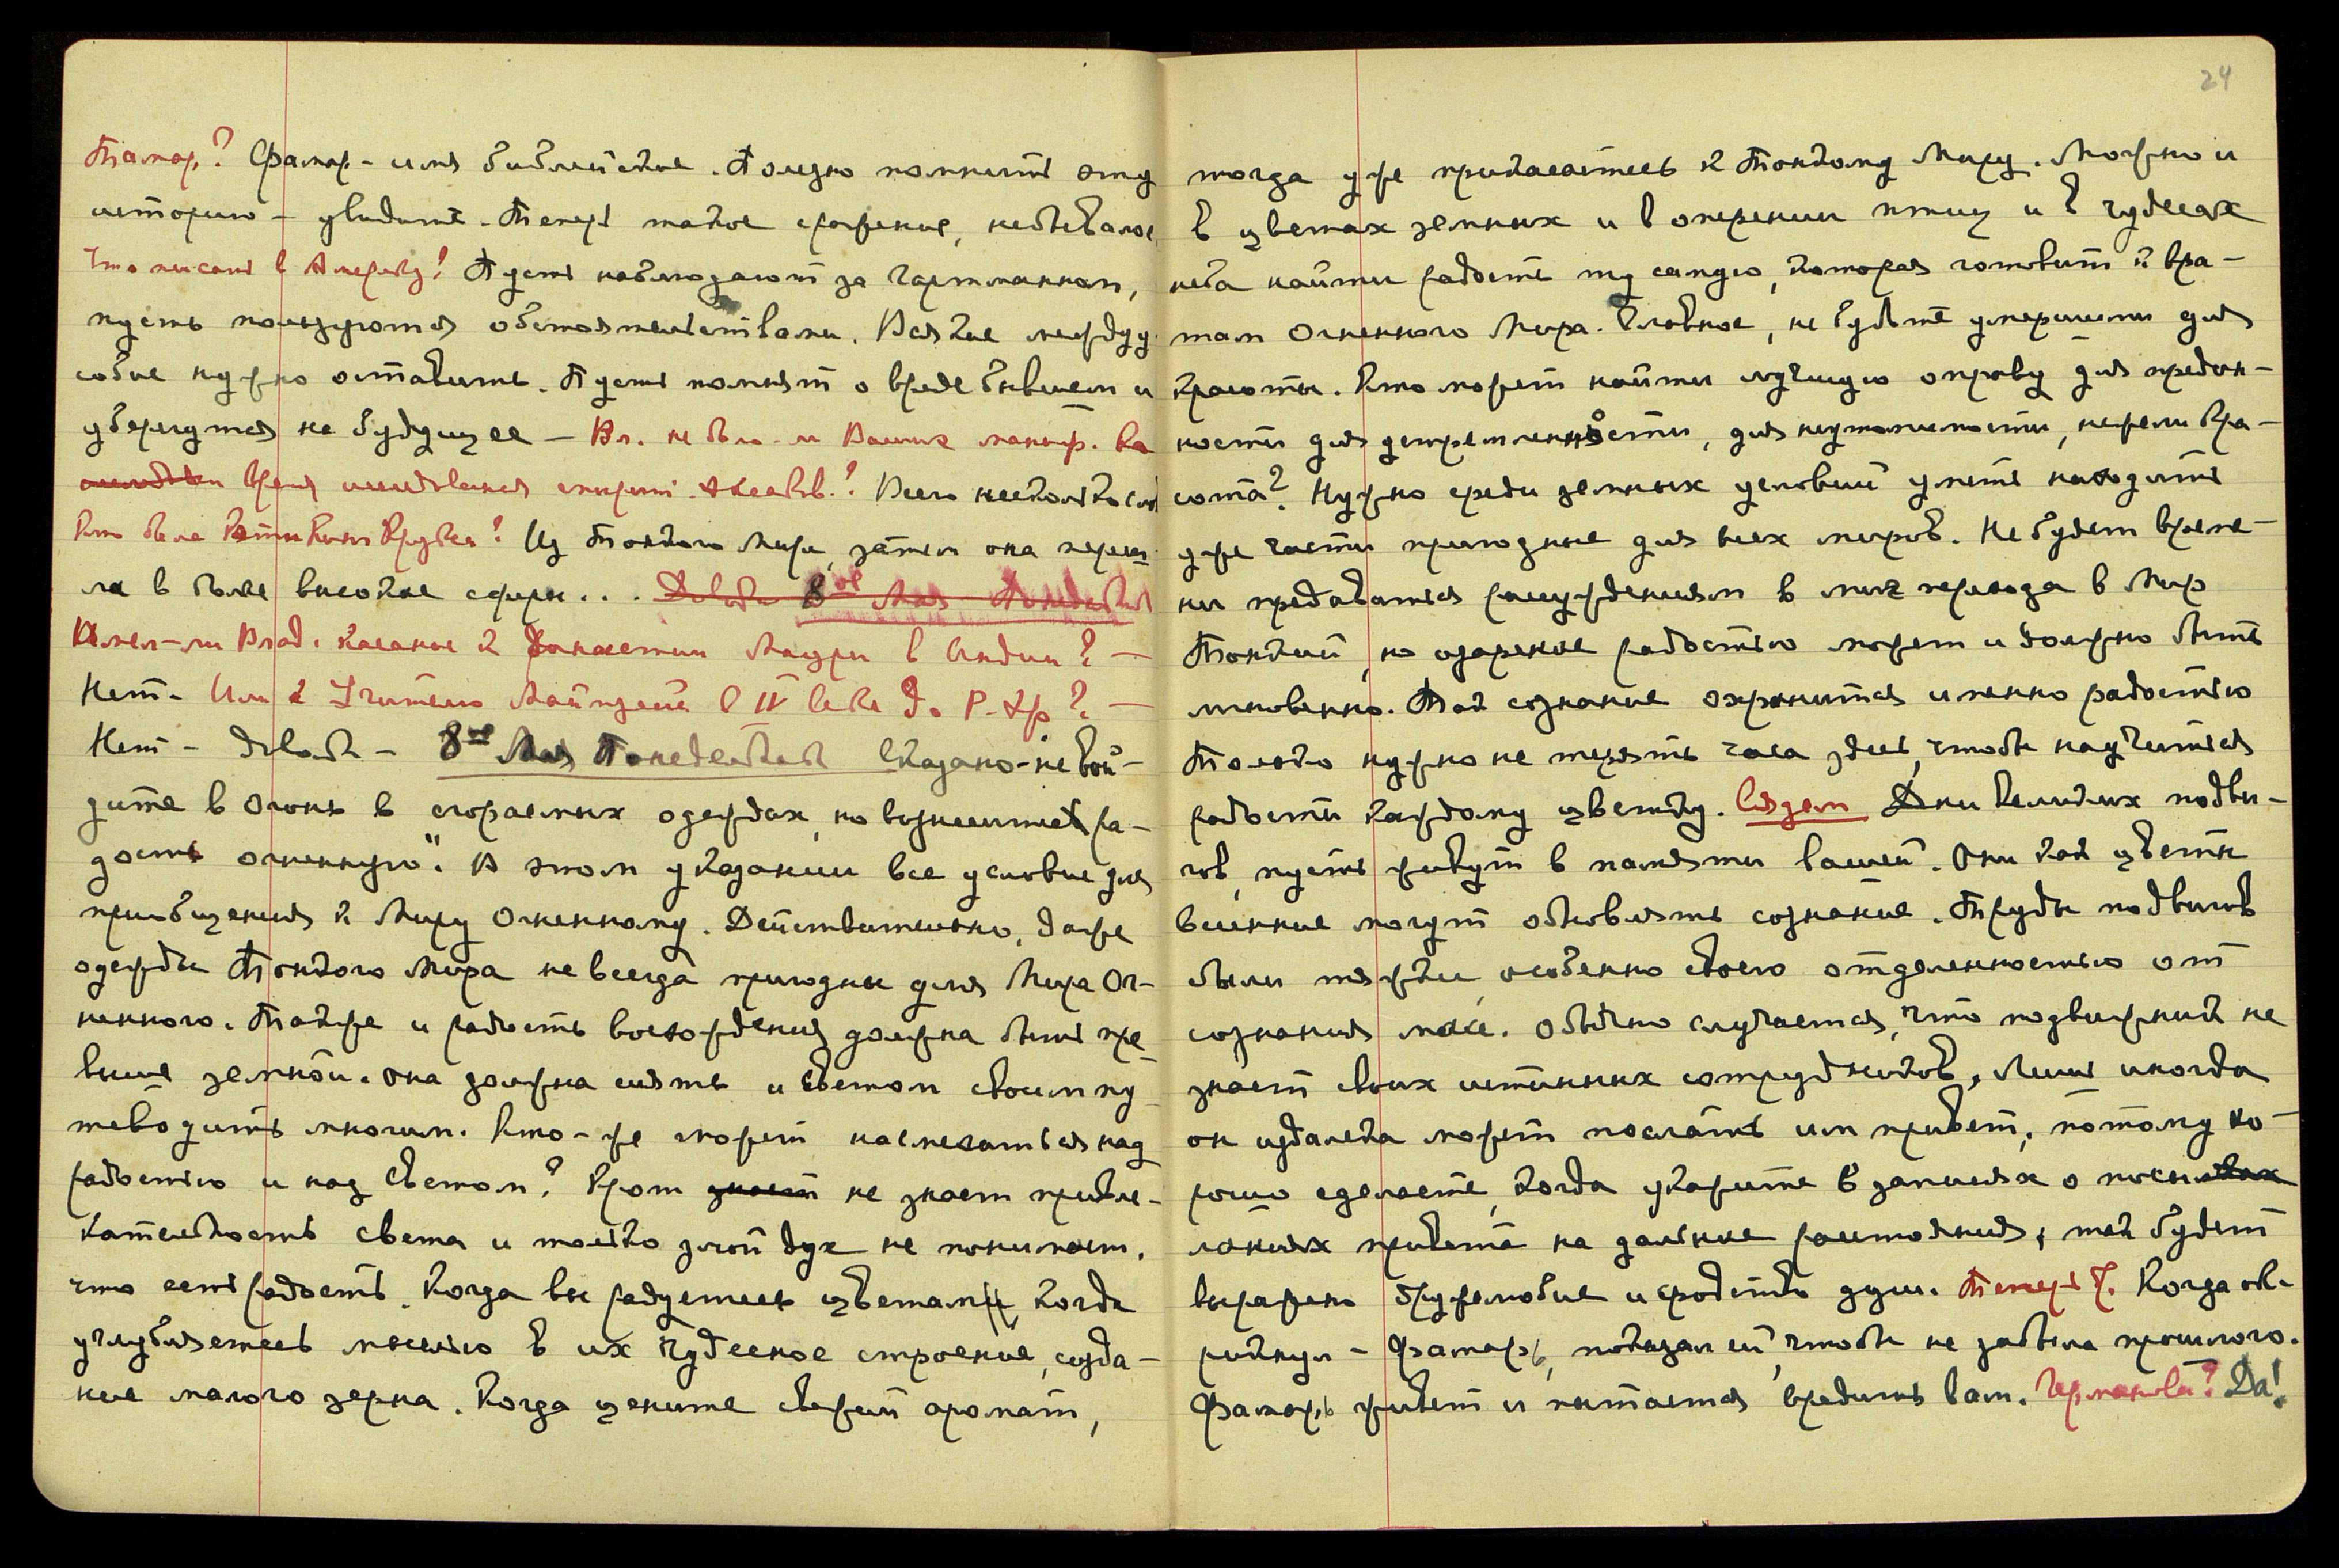 Тамар? Фамар - имя библейское. Полезно помнить эту
историю - увидите. Теперь такое сражение, небывалое
Что писать в Америку? Пусть наблюдают за Гартманном,
пусть пользуются обстоятельствами. Всякие между-
собие нужно оставить. Пусть помнят о вреде бывшем и
уберегутся на будущее - Вл. не было-ли Ваших манускр. во
время исследования спирит. Аксаков.? Всего несколько слов
Кто была Кэти Кинг Крукса? Из Тонкого Мира, затем она переш-
ла в более высокие сферы...
8ое Мая
Имел-ли Влад. касание к Династии Маурьи в Индии? -
Нет - Или к Учителю Майтрейе в IV веке до Р. Хр? -
Нет - Довольно - 8ое Мая Понедельник Сказано - не вой-
дите в огонь в сгораемых одеждах, но вознесите ра-
дость огненную". В этом указании все условие для
приобщения к Миру Огненному. Действительно, даже
одежды Тонкого Мира не всегда пригодны для Мира Ог-
ненного. Также и радость восхождения должна быть пре-
выше земной. Она должна сиять и светом своим пу-
теводить многим. Кто-же может насмехаться над
радостью и над светом? Крот знает не знает привле-
кательность света и только злой дух не понимает,
что есть радость. Когда вы радуетесь цветам, когда
углубляетесь мыслью в их чудесное строение, созда-
ние малого зерна. Когда цените свежий аромат,
24
тогда уже прикасаетесь к Тонкому Миру. Можно и
в цветах земных и в оперении птиц и в чудесах
неба найти радость ту самую, которая готовит к вра-
там Огненного Мира. Главное, не будьте умершими для
красоты. Кто может найти лучшую оправу для предан-
ности для устремленности, для неутомимости, нежели кра-
сота? Нужно среди земных условий уметь находить
уже части пригодные для всех миров. Не будет време-
ни предаваться рассуждениям в миг перехода в Мир
Тонкий, но озарение радостью может и должно быть
мгновенно. Так сознание охранится именно радостью
Только нужно не терять часа здесь, чтобы научиться
радости каждому цветку. Сядем Дни Великих подви-
гов, пусть живут в памяти вашей. Они как цветы
весенние могут обновлять сознание. Труды подвигов
были тяжки, особенно своею отдаленностью от
сознания масс. Обычно случается, что подвижник не
знает своих истинных сотрудников. Лишь иногда
он издалека может послать им привет, потому хо-
рошо сделаете, когда укажите в записях о посы-
ланиях привета на дальние расстояния, так будет
выражено дружелюбие и сродство душ. Теперь Я. Когда ок-
рикнул - Фамарь, показал ей, чтобы не забыла прошлого.
Фамарь живет и пытается вредить вам. Германова? Да!